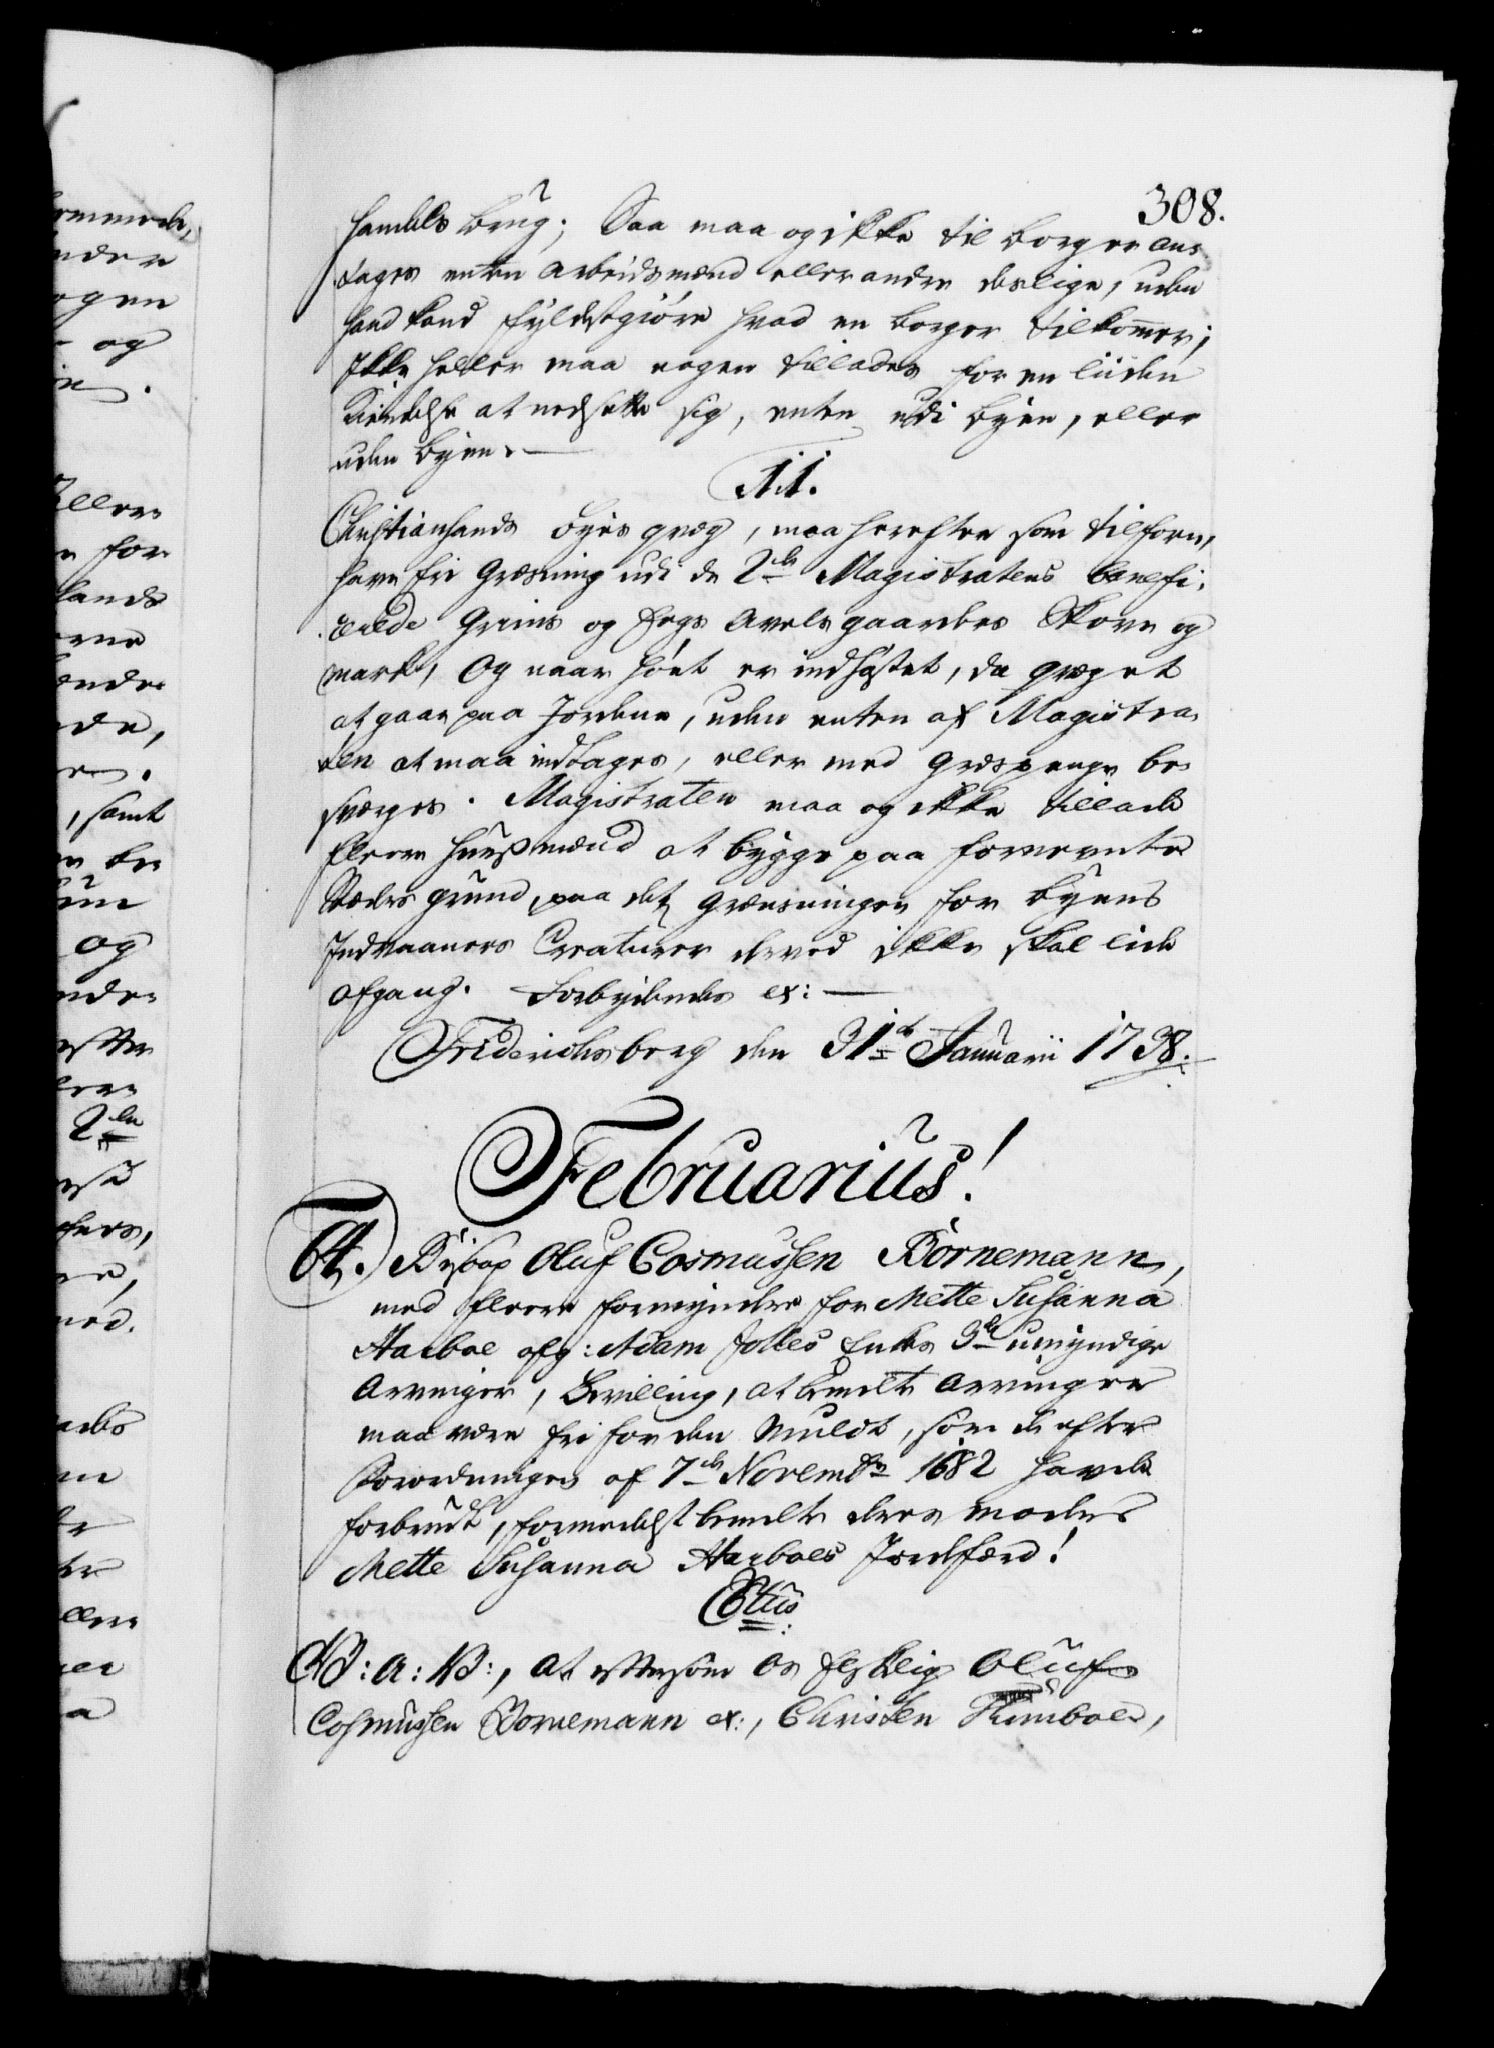 308.
handels brug; Saa maa og ikke til borger an-
tages enten arbeidsmænd eller andre deslige, uden
hand kand fyldestgiøre hvad en borger tilkommer;
Ikke heller maa nogen tillades for en liiden
Kiendelse at nedsette sig, enten udi byen, eller
uden byen.
11.
Christiansands byes qvæg, maa herefter som tilforn,
have fri Græsning udi de 2de Magistratens benefi-
cerede Grims og Eegs avels gaardes Skove og
mark, Og naar høet er indhøstet, da qvæget
at gaae paa Jordene, uden enten af Magistra-
ten at maa indtages, eller med græspenge be-
sværges. Magistraten maa og ikke tillade
fleere huusmænd at bygge paa forneevnte
Stæders grund, paa det Græsningen for byens
Indvaaners Creaturer derved ikke skal lide
afgang. Forbydendes etc:
Friderichsberg den 31te Januarii 1738.
Februarius!
64. Biscop Oluf Cosmussen Bornemann,
med fleere formyndere for Mette Susanna
Harboe afg: Adam Jolles Enkes 3de umyndige
Arvinger, Bevilling, at bemelte Arvinger
maa være fri for den Muldt, som de efter
Forordningen af 7de Novembr 1682 havde
forbrudt, formedelst bemelte deres moders
Mette Susanna Harboes Jordefærd!
C 8tus
W: a: W:, At eftersom Os Elskelig Oluf
Cosmussen Bornemann etc:, Christen